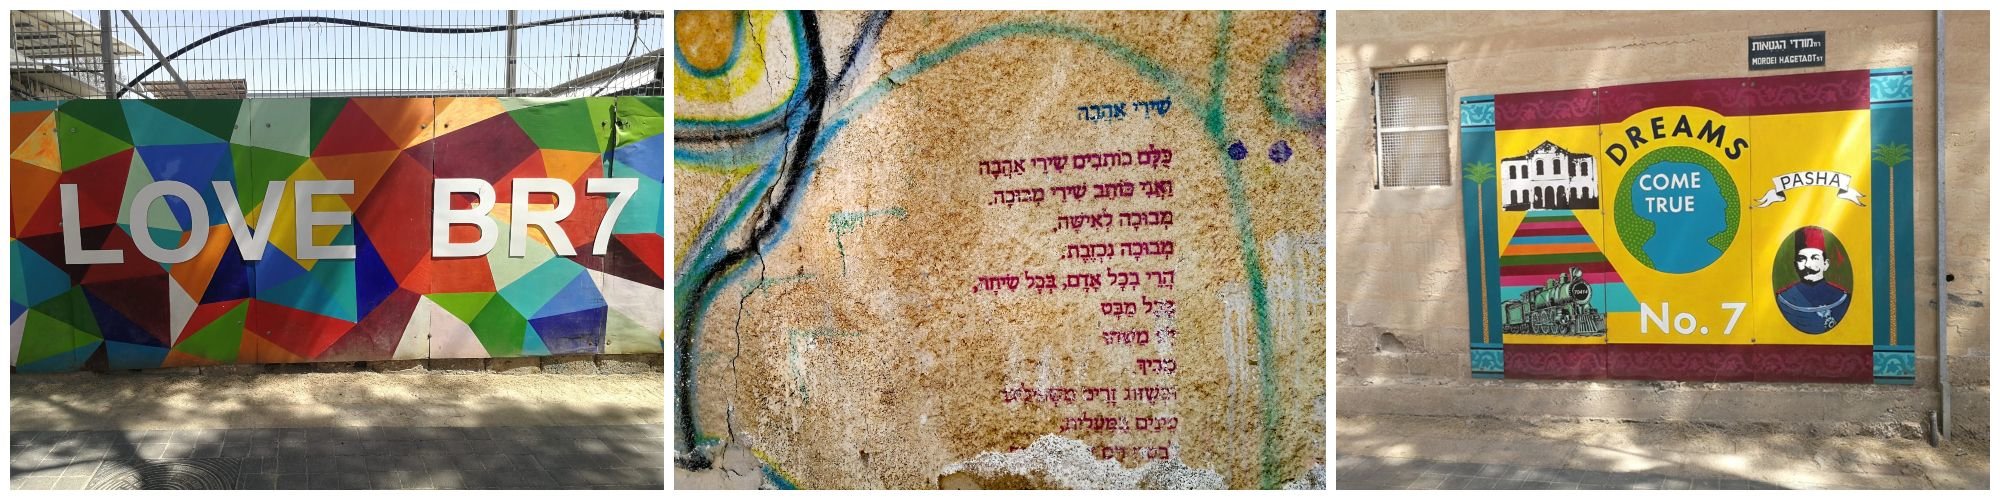 LOVE BR7
שִׁירֵי אַהֲבָה
כֻּלָּם כּוֹתְבִים שִׁירֵי אַהֲבָה
וַאֲנִי כּוֹתֵב שִׁירֵי מְבוּכָה.
מְבוּכָה לְאִישָׁהּ,
מְבוּכָה נִכְזֶבֶת.
הֲרֵי בְּכָל אָדָם, בְּכָל שִׂיחָה,
בְּכָל מַבָּט
מַשֶּׁהוּ
מֵבִיךְ.
זָרִים
בַּמַּעֲלִית,
רח' מורדי הגטאות
MORDEI HAGETAOT ST
DREAMS
COME
TRUE
PASHA
70414
No. 7